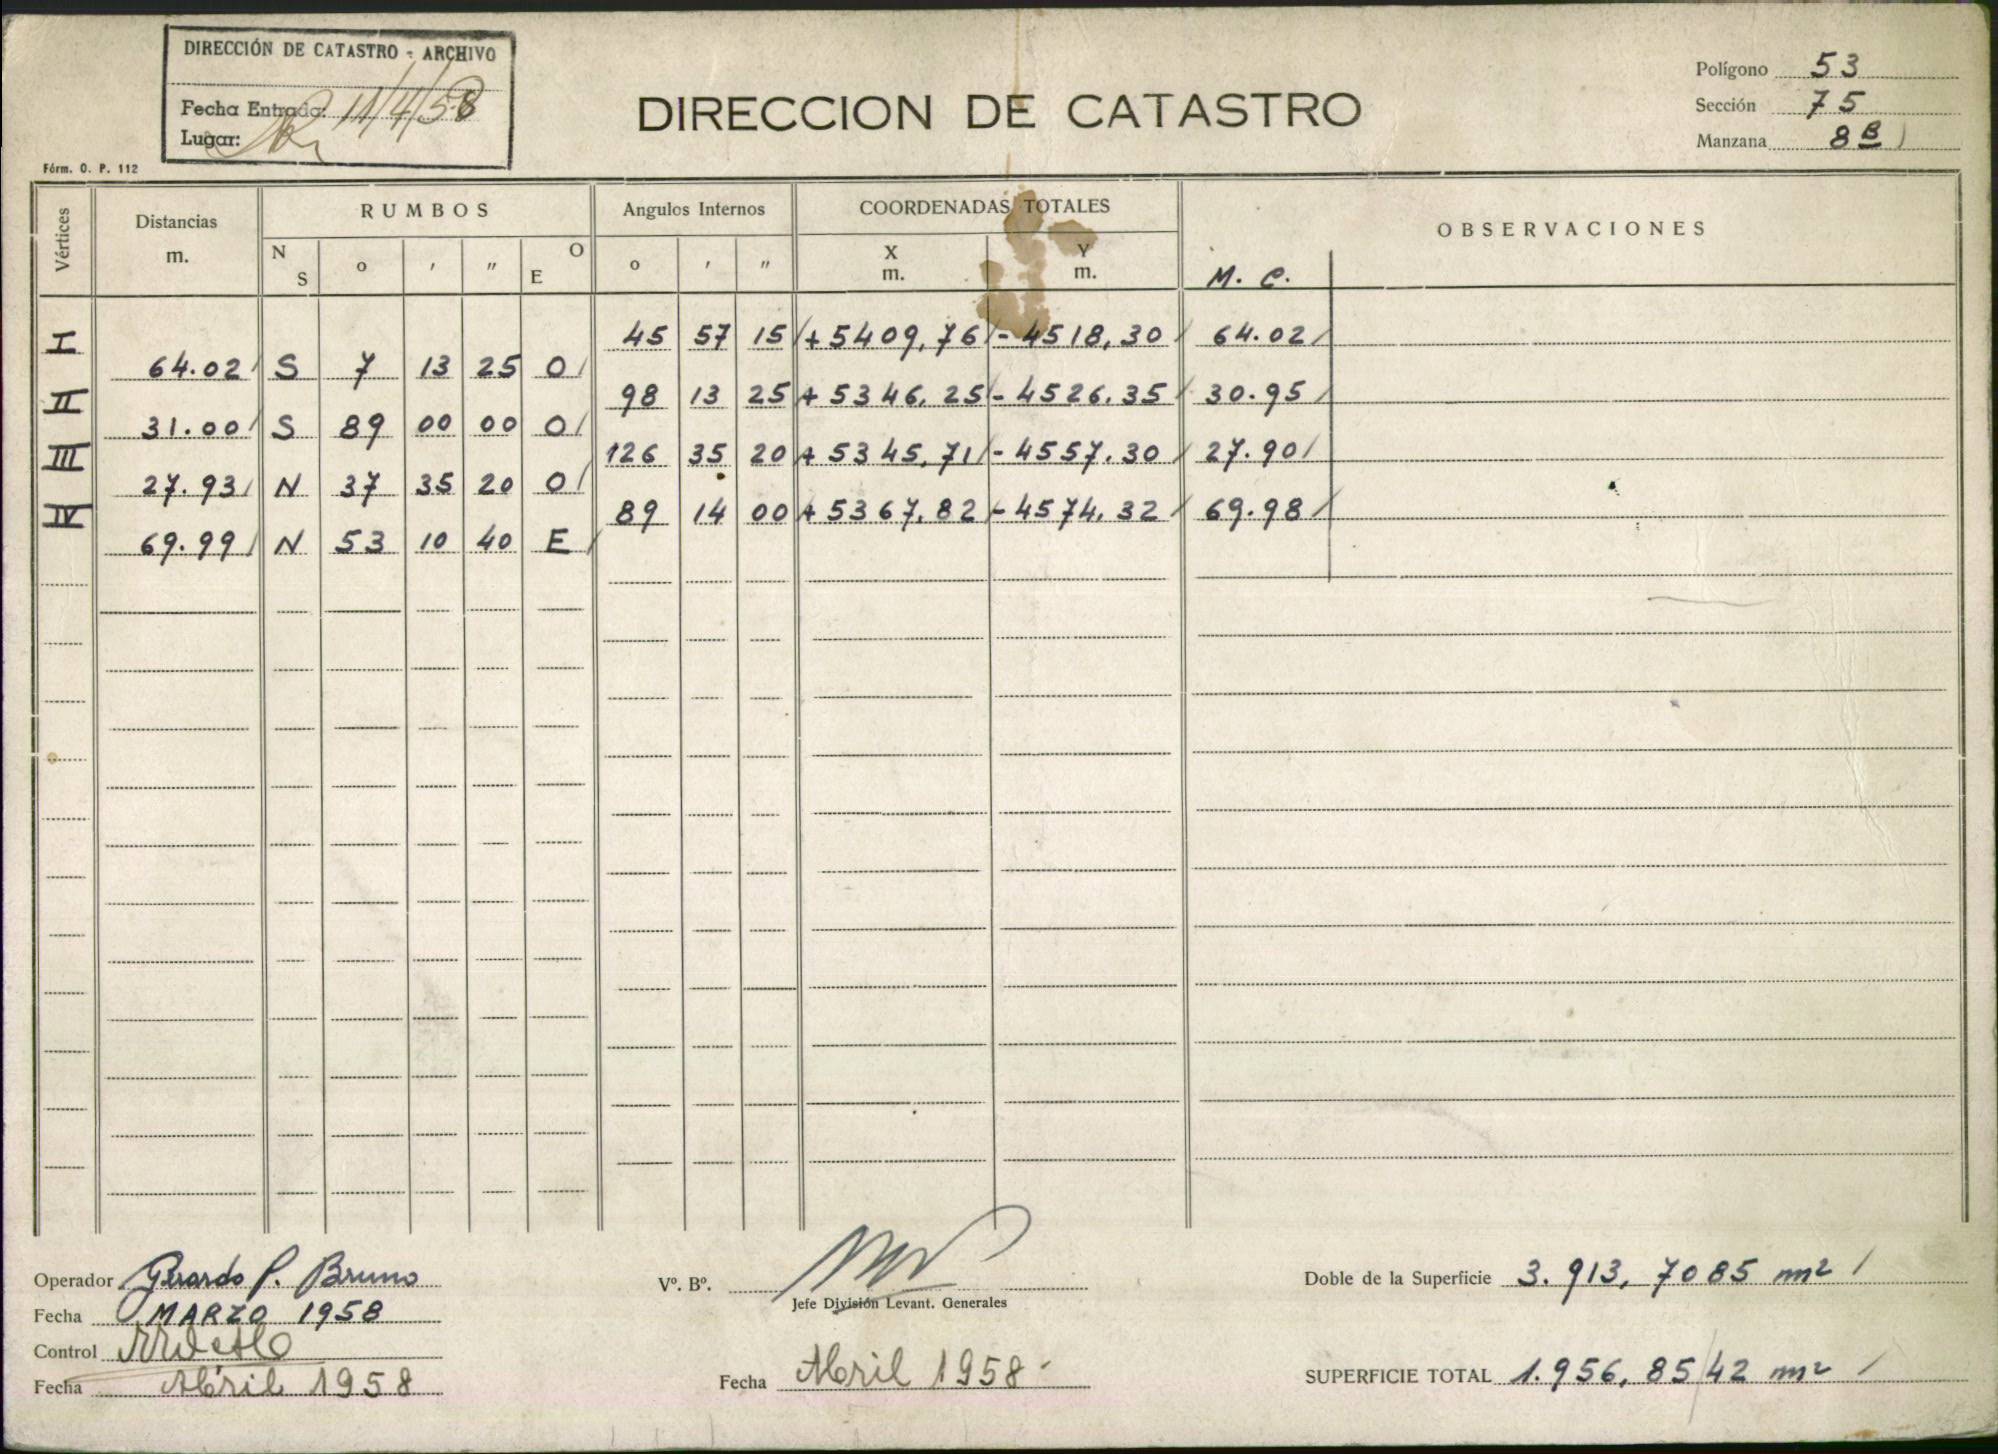 DIRECCIÓN DE CATASTRO - ARCHIVO
Fecha Entrada: 11/4/58
Lugar:
Fórm. O. P. 112
DIRECCION DE CATASTRO
Polígono 53
Sección 75
Manzana 8 B
Vértices Distancias m. RUMBOS Angulos Internos COORDENADAS TOTALES OBSERVACIONES
N S o ' " O E o ' " X m. Y m. M. C.
I 45 57 15 + 5409,76 - 4518,30 64.02
64.02 S 7 13 25 O
II 98 13 25 + 5346,25 - 4526,35 30.95
31.00 S 89 00 00 O
III 126 35 20 + 5345,71 - 4557,30 27.90
27.93 N 37 35 20 O
IV 89 14 00 + 5367,82 - 4574,32 69.98
69.99 N 53 10 40 E
Operador Gerardo P. Bruno
Fecha MARZO 1958
Control
Fecha Abril 1958
Vº. Bº.
Jefe División Levant. Generales
Fecha Abril 1958-
Doble de la Superficie 3.913,7085 m²
SUPERFICIE TOTAL 1.956,8542 m²